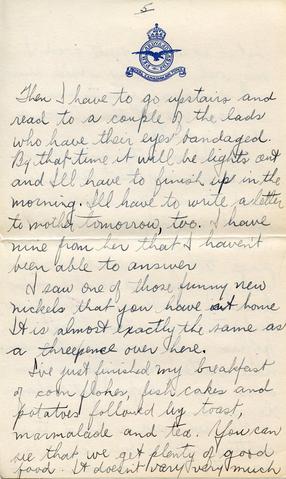 5
ROYAL CANADIAN AIR FORCE
Then I have to go upstairs and
read to a couple of the lads
who have their eyes bandaged.
By that time it will be lights out
and I'll have to finish up in the
morning. I'll have to write a letter
to mother tomorrow, too. I have
nine from her that I haven't
been able to answer
I saw one of those funny new
nickels that you have at home
It is almost exactly the same as
a threepence over here.
I've just finished my breakfast
of corn flakes, fish cakes and
potatoes followed by toast,
marmalade and tea. You can
see that we get plenty of good
food. It doesn't vary very much